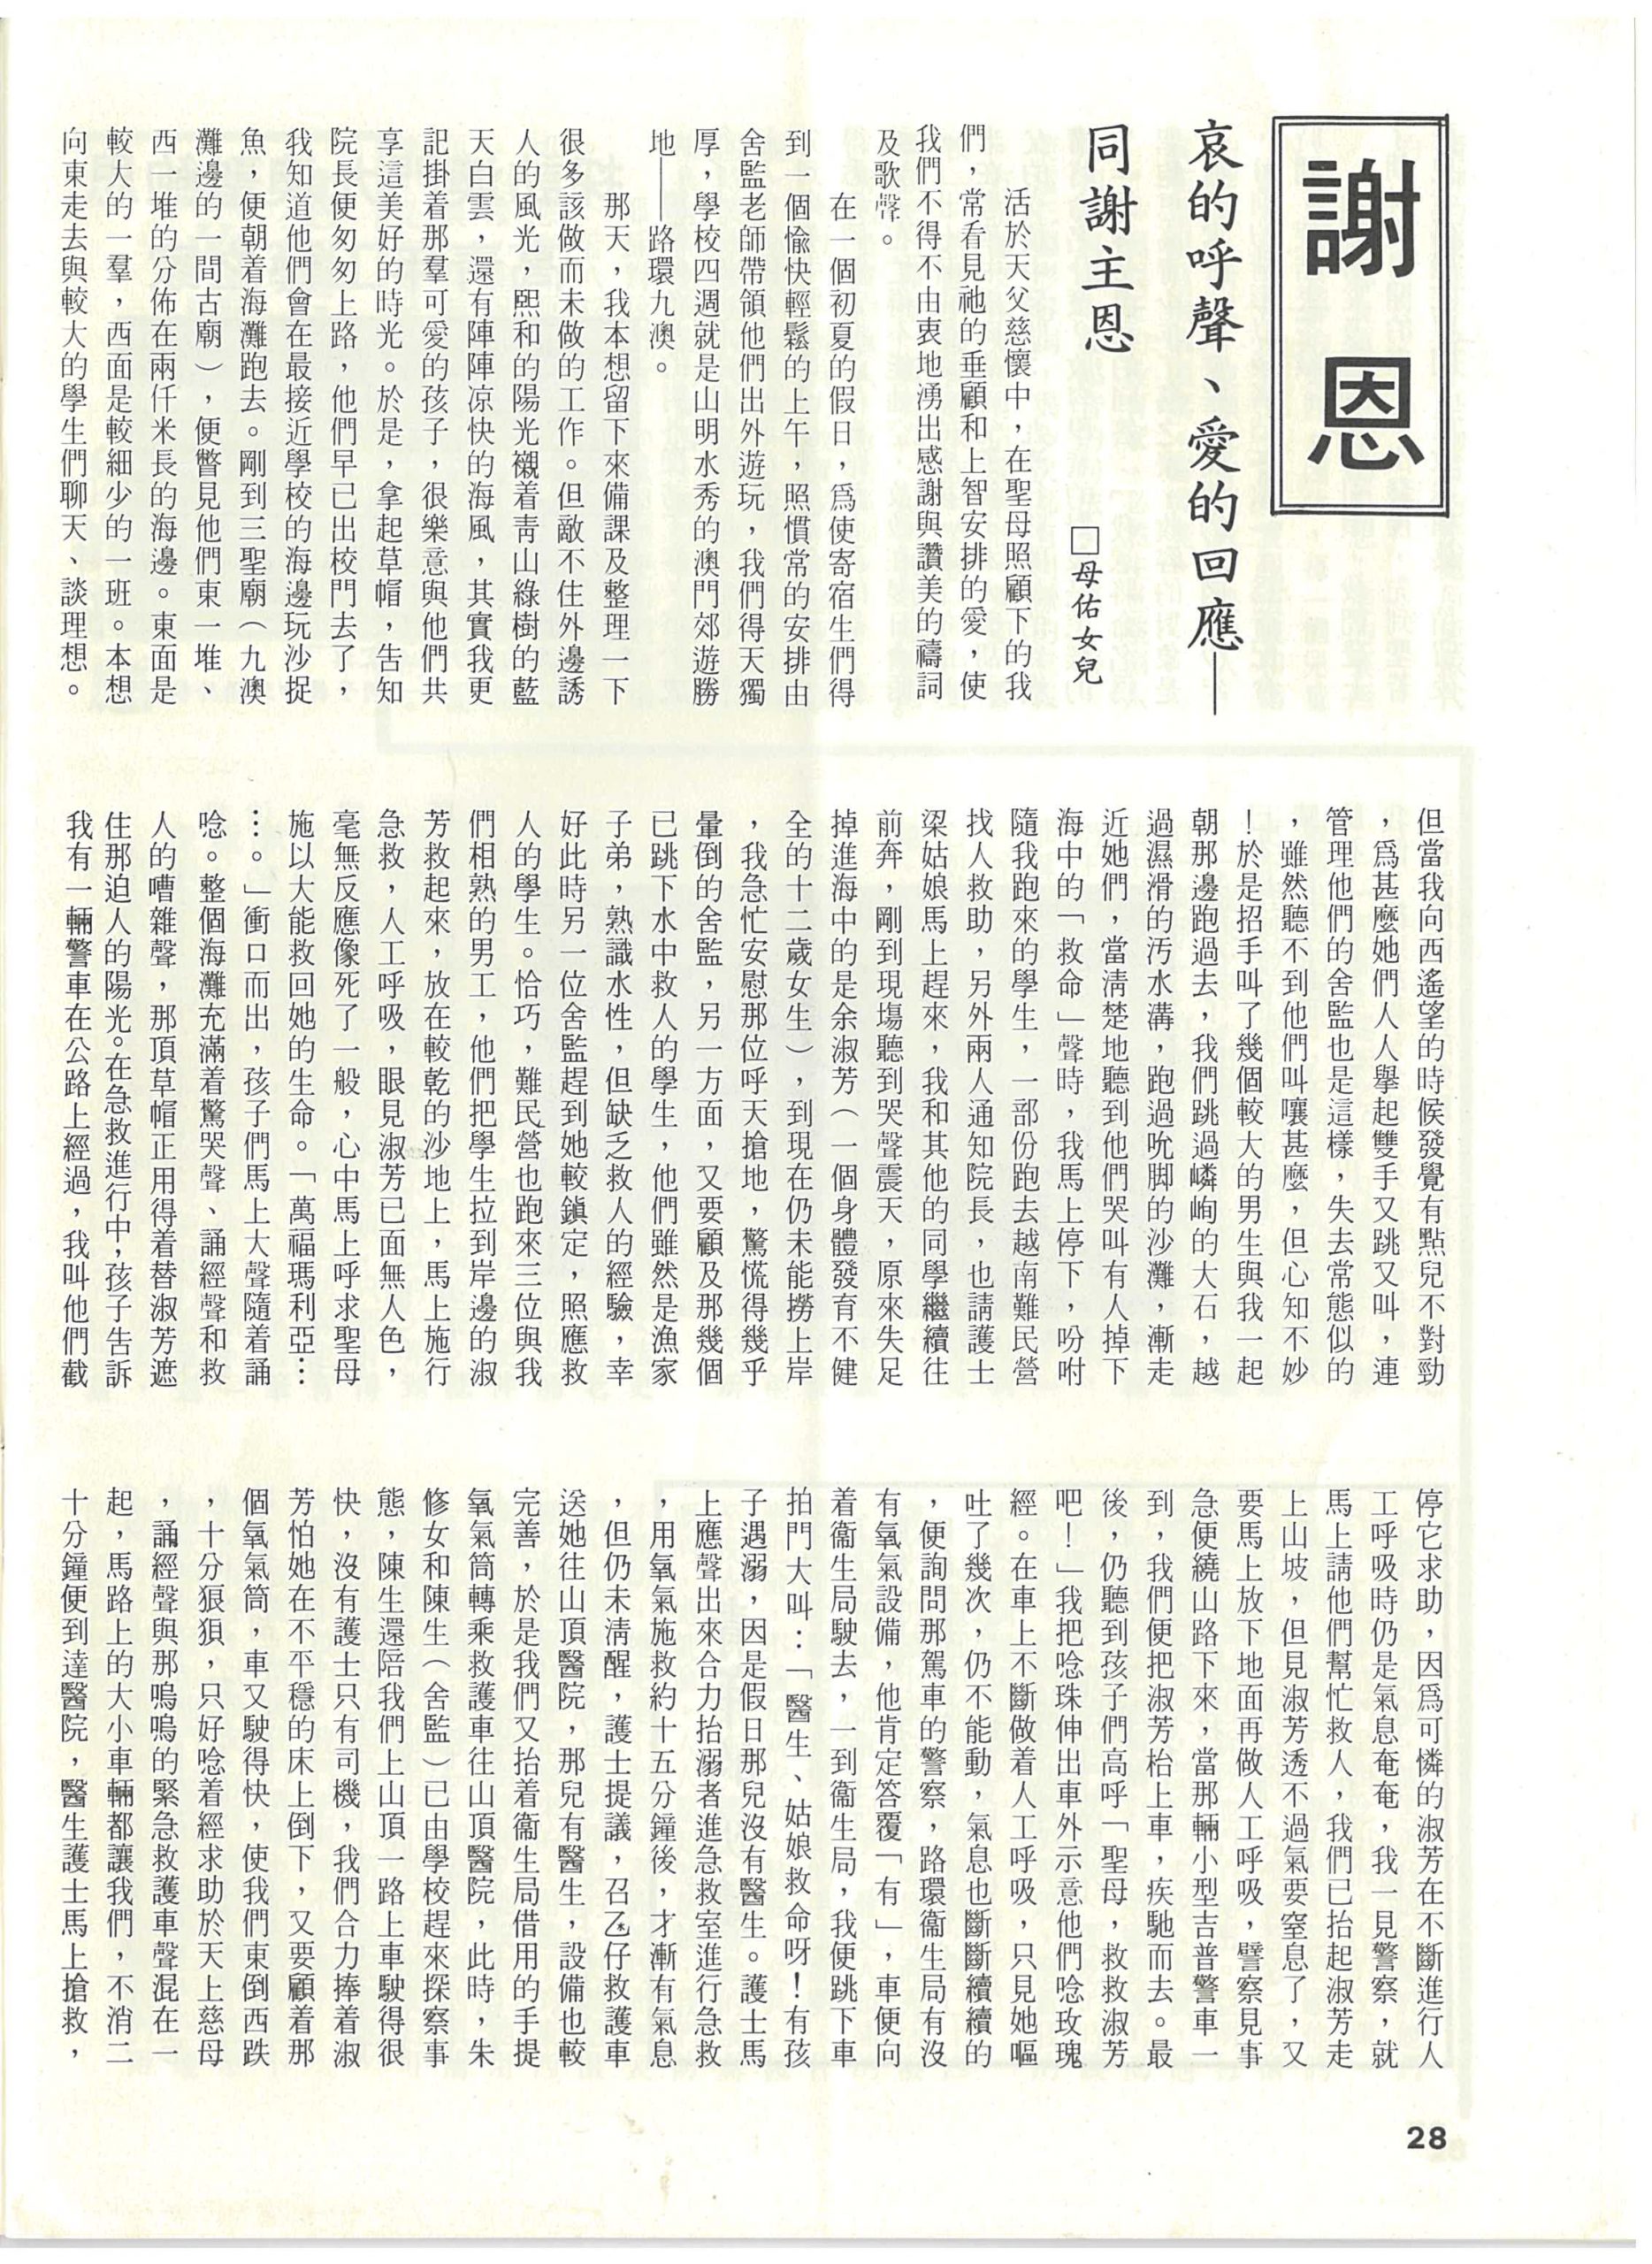 謝恩
哀的呼聲、愛的回應——
同謝主恩
□母佑女兒
活於天父慈懷中，在聖母照顧下的我
們，常看見祂的垂顧和上智安排的愛，使
我們不得不由衷地湧出感謝與讚美的禱詞
及歌聲。
在一個初夏的假日，爲使寄宿生們得
到一個愉快輕鬆的上午，照慣常的安排由
舍監老師帶領他們出外遊玩，我們得天獨
厚，學校四週就是山明水秀的澳門郊遊勝
地——路環九澳。
那天，我本想留下來備課及整理一下
很多該做而未做的工作。但敵不住外邊誘
人的風光，熙和的陽光襯着靑山綠樹的藍
天白雲，還有陣陣凉快的海風，其實我更
記掛着那羣可愛的孩子，很樂意與他們共
享這美好的時光。於是，拿起草帽，吿知
院長便匆匆上路，他們早已出校門去了，
我知道他們會在最接近學校的海邊玩沙捉
魚，便朝着海灘跑去。剛到三聖廟（九澳
灘邊的一間古廟），便瞥見他們東一堆、
西一堆的分佈在兩仟米長的海邊。東面是
較大的一羣，西面是較細少的一班。本想
向東走去與較大的學生們聊天、談理想。
但當我向西遙望的時候發覺有點兒不對勁
，爲甚麼她們人人擧起雙手又跳又叫，連
管理他們的舍監也是這樣，失去常態似的
，雖然聽不到他們叫嚷甚麼，但心知不妙
！於是招手叫了幾個較大的男生與我一起
朝那邊跑過去，我們跳過嶙峋的大石，越
過濕滑的汚水溝，跑過吮脚的沙灘，漸走
近她們，當淸楚地聽到他們哭叫有人掉下
海中的「救命」聲時，我馬上停下，吩咐
隨我跑來的學生，一部份跑去越南難民營
找人救助，另外兩人通知院長，也請護士
梁姑娘馬上趕來，我和其他的同學繼續往
前奔，剛到現塲聽到哭聲震天，原來失足
掉進海中的是余淑芳（一個身體發育不健
全的十二歲女生），到現在仍未能撈上岸
，我急忙安慰那位呼天搶地，驚慌得幾乎
暈倒的舍監，另一方面，又要顧及那幾個
已跳下水中救人的學生，他們雖然是漁家
子弟，熟識水性，但缺乏救人的經驗，幸
好此時另一位舍監趕到她較鎮定，照應救
人的學生。恰巧，難民營也跑來三位與我
們相熟的男工，他們把學生拉到岸邊的淑
芳救起來，放在較乾的沙地上，馬上施行
急救，人工呼吸，眼見淑芳已面無人色，
毫無反應像死了一般，心中馬上呼求聖母
施以大能救回她的生命。「萬福瑪利亞…
…。」衝口而出，孩子們馬上大聲隨着誦
唸。整個海灘充滿着驚哭聲、誦經聲和救
人的嘈雜聲，那頂草帽正用得着替淑芳遮
住那迫人的陽光。在急救進行中，孩子吿訴
我有一輛警車在公路上經過，我叫他們截
停它求助，因爲可憐的淑芳在不斷進行人
工呼吸時仍是氣息奄奄，我一見警察，就
馬上請他們幫忙救人，我們已抬起淑芳走
上山坡，但見淑芳透不過氣要窒息了，又
要馬上放下地面再做人工呼吸，警察見事
急便繞山路下來，當那輛小型吉普警車一
到，我們便把淑芳枱上車，疾馳而去。最
後，仍聽到孩子們高呼「聖母，救救淑芳
吧！」我把唸珠伸出車外示意他們唸玫瑰
經。在車上不斷做着人工呼吸，只見她嘔
吐了幾次，仍不能動，氣息也斷斷續續的
，便詢問那駕車的警察，路環衞生局有沒
有氧氣設備，他肯定答覆「有」，車便向
着衞生局駛去，一到衞生局，我便跳下車
拍門大叫：「醫生、姑娘救命呀！有孩
子遇溺，因是假日那兒沒有醫生。護士馬
上應聲出來合力抬溺者進急救室進行急救
，用氧氣施救約十五分鐘後，才漸有氣息
，但仍未淸醒，護士提議，召氹仔救護車
送她往山頂醫院，那兒有醫生，設備也較
完善，於是我們又抬着衞生局借用的手提
氧氣筒轉乘救護車往山頂醫院，此時，朱
修女和陳生（舍監）已由學校趕來探察事
態，陳生還陪我們上山頂一路上車駛得很
快，沒有護士只有司機，我們合力捧着淑
芳怕她在不平穩的床上倒下，又要顧着那
個氧氣筒，車又駛得快，使我們東倒西跌
，十分狼狽，只好唸着經求助於天上慈母
，誦經聲與那嗚嗚的緊急救護車聲混在一
起，馬路上的大小車輛都讓我們，不消二
十分鐘便到達醫院，醫生護士馬上搶救，
28